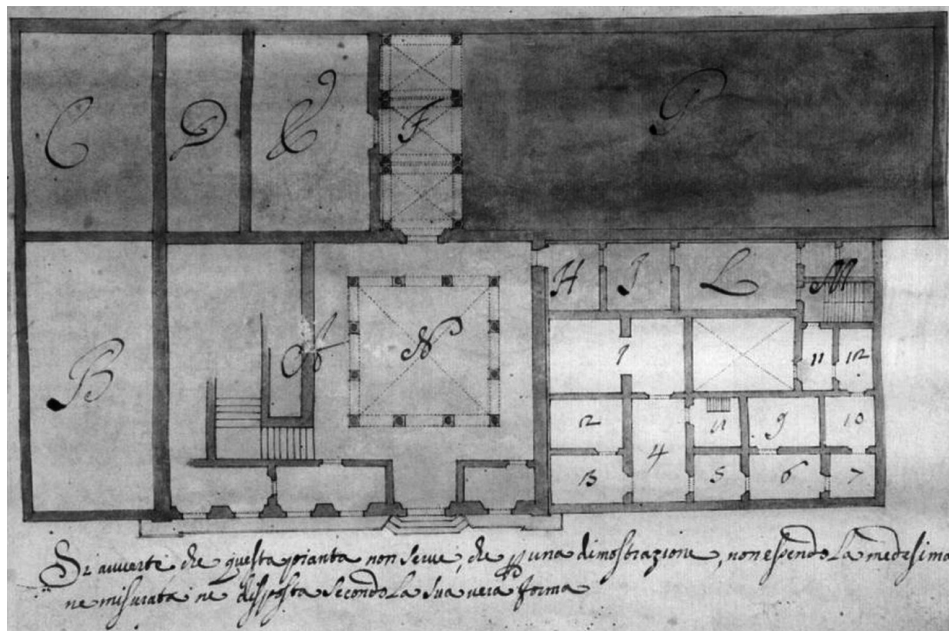 C D E F G
H I L M
A N
B
1 11 12
12 4 11 9 10
13 5 6 7
Si avverte che questa pianta non serve, che p una dimostrazione, non essendo la medesima
ne misurata ne disposta secondo la sua vera forma